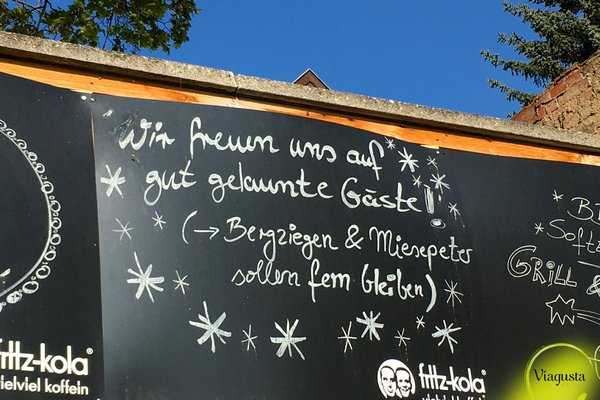 Wir freuen uns auf
gut gelaunte Gäste!
(→ Bergziegen & Miesepeter
sollen fern bleiben)
fritz-kola®
vielviel koffein
fritz-kola®
vielviel koffein
GRILL &
Viagusta